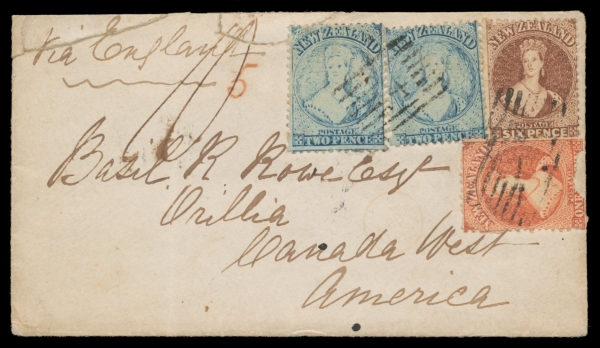 Via England
5
NEW ZEALAND
POSTAGE
TWO PENCE
NEW ZEALAND
POSTAGE
TWO PENCE
NEW ZEALAND
POSTAGE
SIX PENCE
NEW ZEALAND
POSTAGE
ONE
Basil R Rowe Esqr
Orillia
Canada West
America